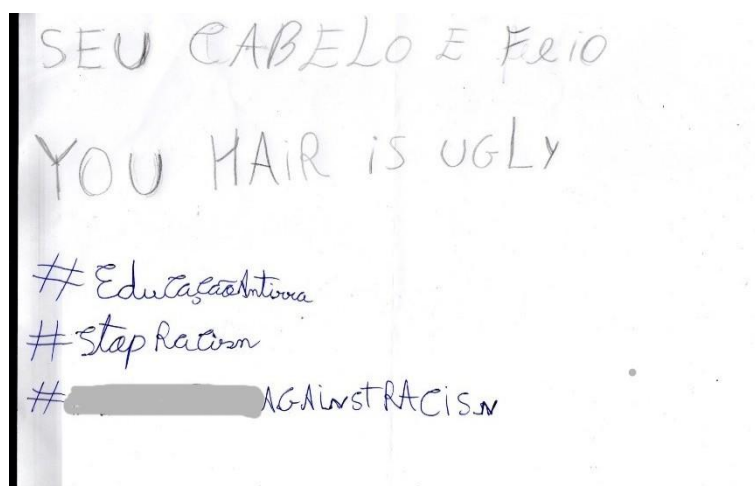 SEU CABELO E Feio
YOU HAIR iS UGLY
#EducaçãoAntirra
#StopRacism
#AGAiNSTRACiSM